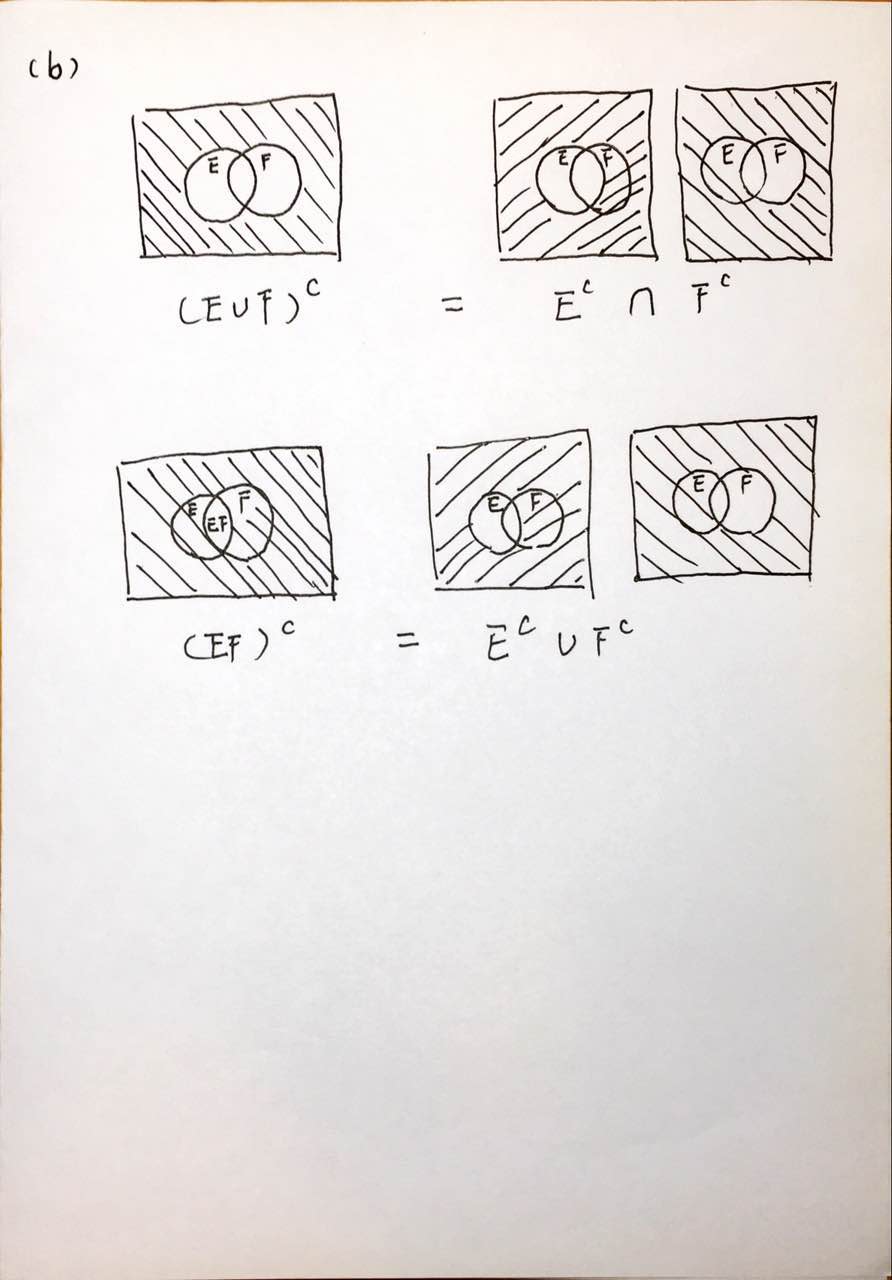 (b)
E F E F E F
(E∪F)ᶜ = Eᶜ ∩ Fᶜ
E EF F E F E F
(EF)ᶜ = Eᶜ ∪ Fᶜ